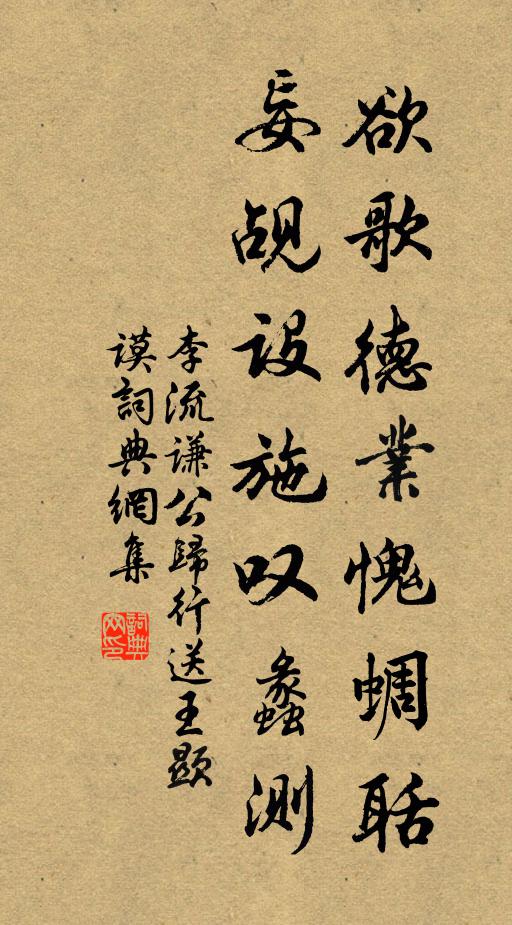 欲歌德業愧蜩聒
妄觇设施叹蠡測
李流谦公歸行送王顯
谟詞典網集
詞典網印